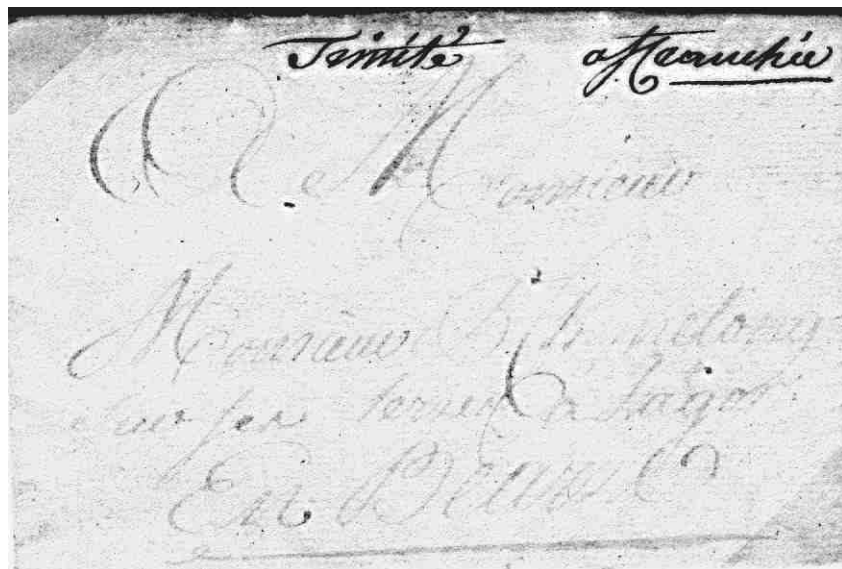 Trinité affranchie
A Monsieur
Monsieur
Sur ses terres a Lagor
En Bearn